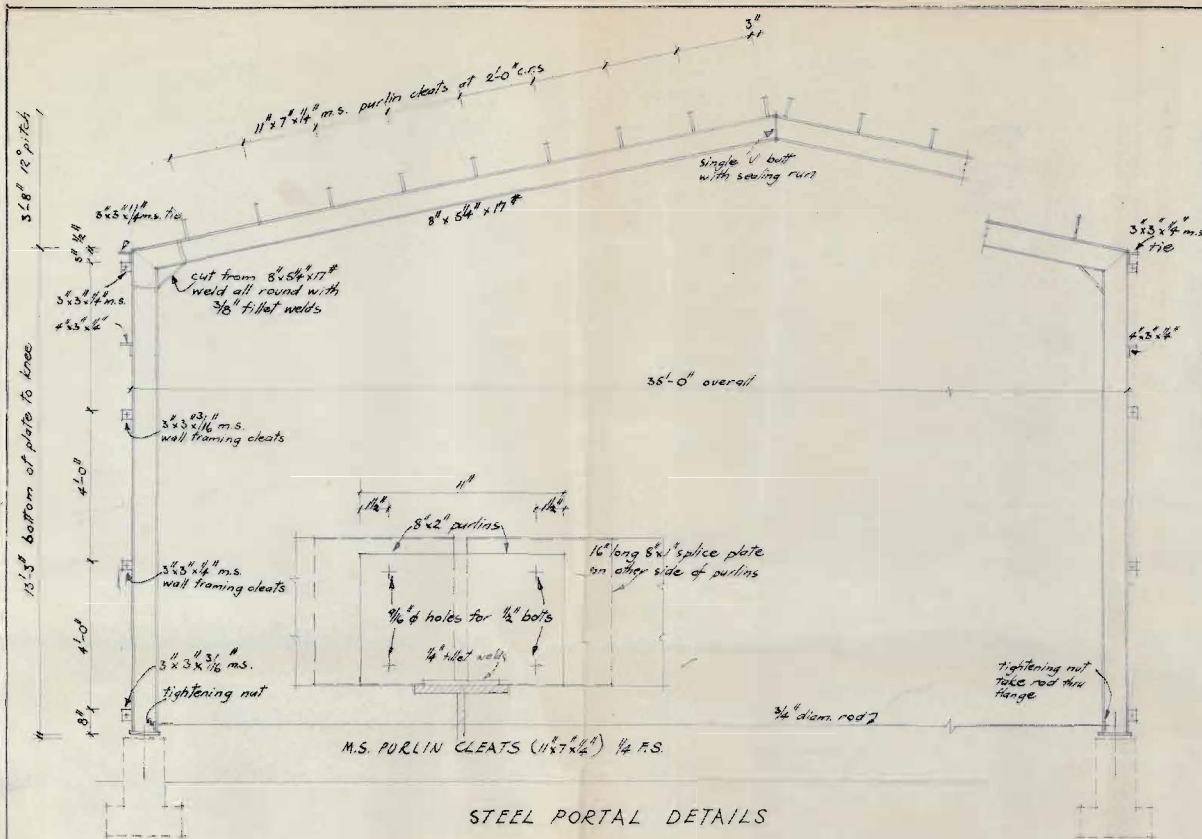 3"
11" x 7" x 1/4" m.s. purlin cleats at 2'-0" c.r.s
3'-8" 12° pitch
single 'V' butt
with sealing run
8" x 5 1/4" x 17#
3"x3"x1/4" m.s. tie
3"x3"x1/4" m.s.
tie
cut from 8"x5 1/4"x17#
weld all round with
3/8" fillet welds
3"x3"x1/4" m.s.
4"x3"x1/4"
4"x3"x1/4"
35'-0" overall
13'-3" bottom of plate to knee
3"x3"x3/16" m.s.
wall framing cleats
4'-0"
11"
1 1/2"
1 1/2"
8"x2" purlins
16" long 8"x1" splice plate
on other side of purlins
3"x3"x1/4" m.s.
wall framing cleats
9/16" ø holes for 1/2" bolts
4'-0"
1/4" fillet welds
3" x 3" x 3/16" m.s.
tightening nut
tightening nut
take rod thru
flange
8"
3/4" diam. rod
M.S. PURLIN CLEATS (11"x7"x1/4") 1/4 F.S.
STEEL PORTAL DETAILS